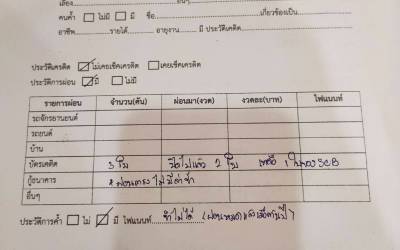 เลียง............................................อื่นๆ....................
คนค้ำ ☐ ไม่มี ☐ มี ชื่อ..............................เกี่ยวข้องเป็น..............
อาชีพ.............รายได้................ อายุงาน............ มี ประวัติเครดิต..............
ประวัติเครดิต ☑ไม่เคยเช็คเครดิต ☐เคยเช็คเครดิต
ประวัติการผ่อน ☑มี ☐ไม่มี
รายการผ่อน จำนวน(คัน) ผ่อนมา(งวด) งวดละ(บาท) ไฟแนนท์
รถจักรยานยนต์
รถยนต์
บ้าน
บัตรเคดิต 3 ใบ ปิดไปแล้ว 2 ใบ เหลือ 1 ใบของ SCB
กู้ธนาคาร * ผ่อนตรง ไม่มีล่าช้า
อื่นๆ
ประวัติการค้ำ ☐ ไม่ ☑ มี ไฟแนนท์ จำไม่ได้ (ผ่อนหมดแล้ว